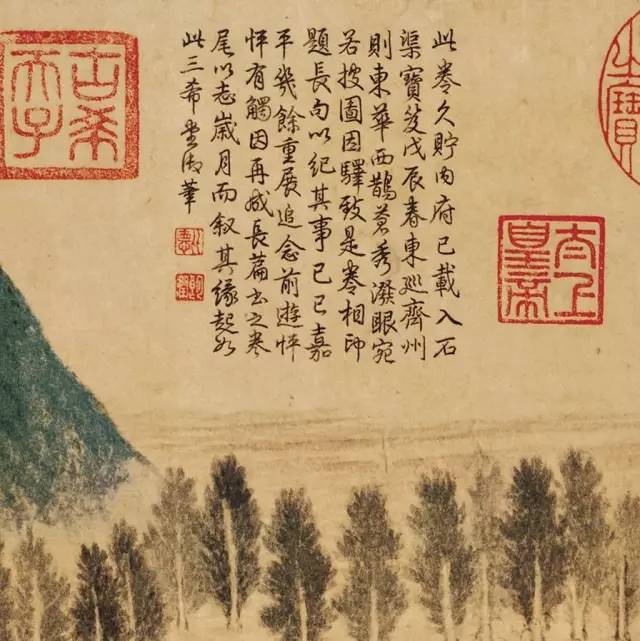 此卷久貯内府已載入石
渠寶笈戊辰春東巡齊州
則東華西鵲蒼秀潑眼宛
若披圖因驛致是卷相印
題長句以紀其事己巳嘉
平幾餘重展追念前遊怦
怦有觸因再成長篇書之卷
尾以志歲月而敘其緣起如
此三希堂御筆
之寶
太上皇帝
古希天子